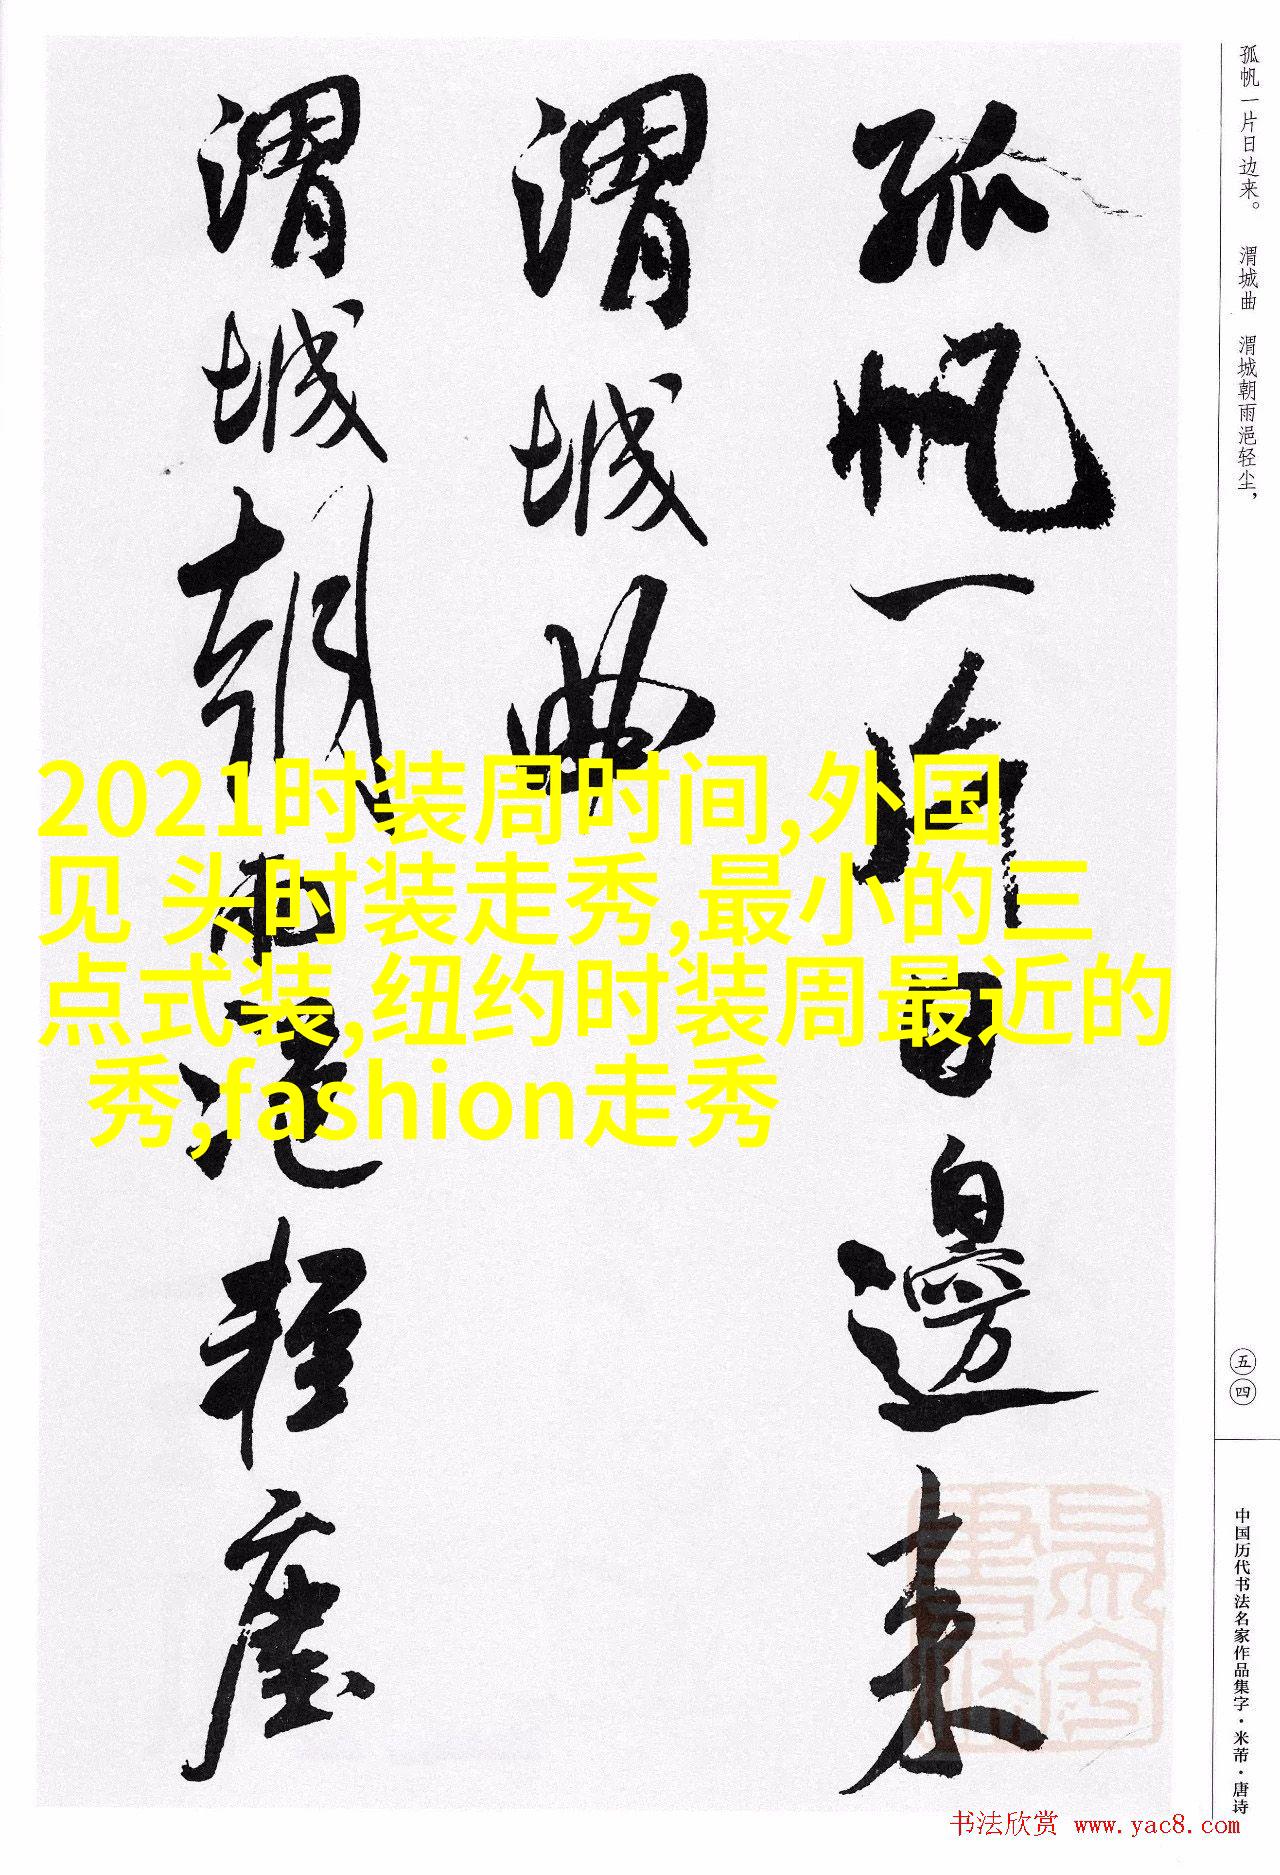 孤帆一片日邊来
渭城曲
渭城朝雨浥輕塵
2021时装周时间,外国
见 头时装走秀,最小的三
点式装,纽约时装周最近的
秀,fashion走秀
孤帆一片日边来。 渭城曲 渭城朝雨浥轻尘，
五四
中国历代书法名家作品集字·米芾·唐诗
书法欣赏 www.yac8.com